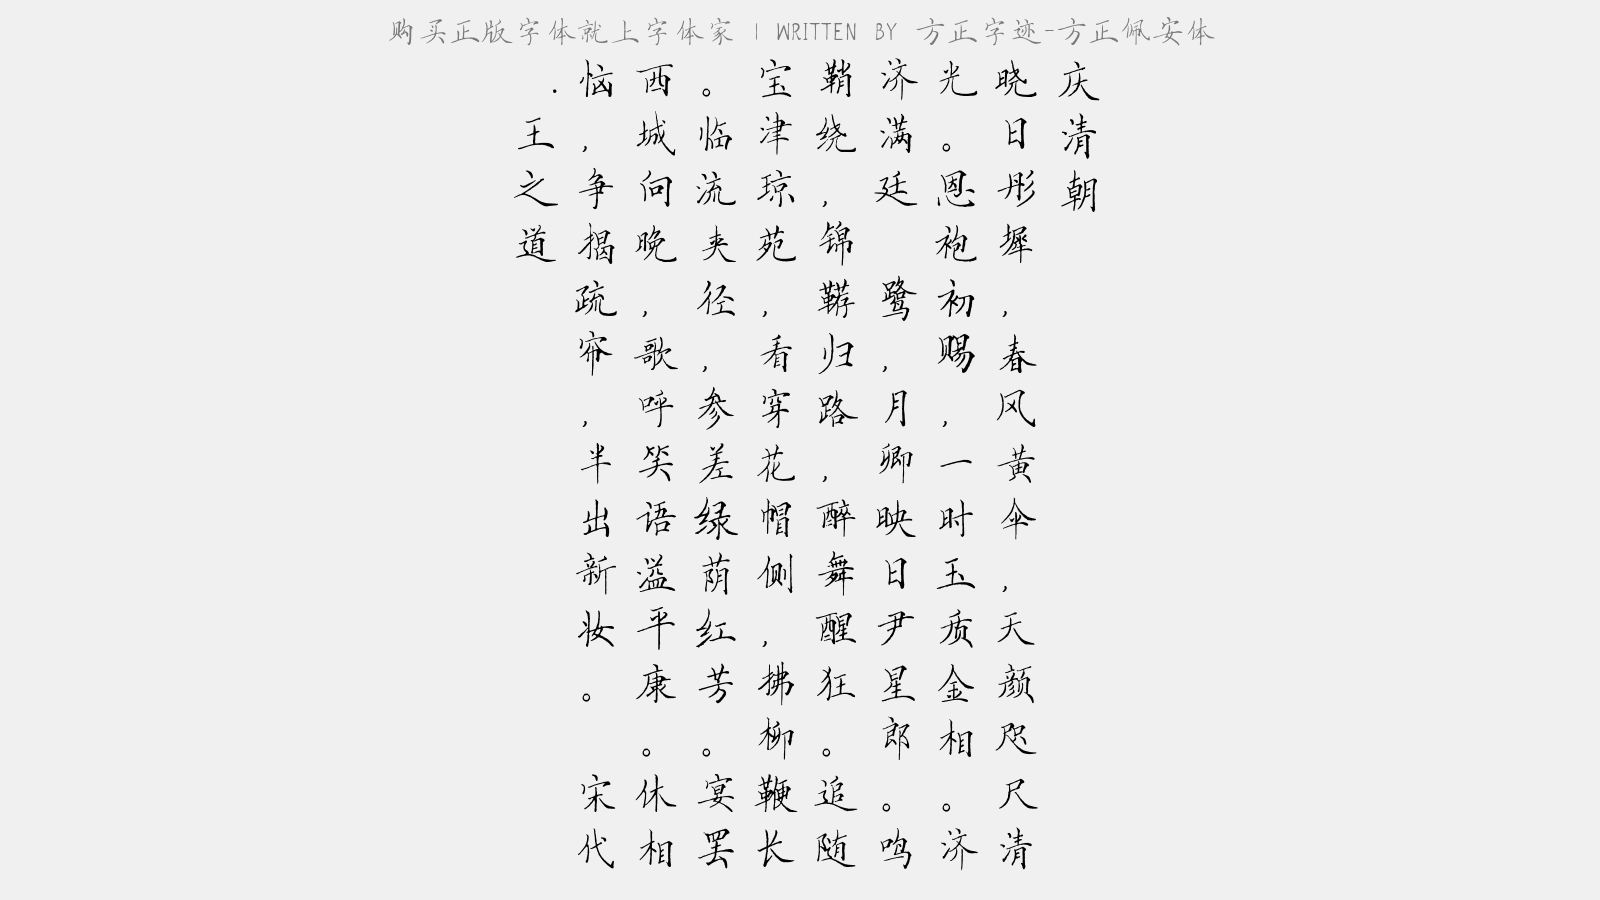 购买正版字体就上字体家 | WRITTEN BY 方正字迹-方正佩安体
庆清朝
晓日彤墀，春风黄伞，天颜咫尺清
光。恩袍初赐，一时玉质金相。济
济满廷鹭，月卿映日尹星郎。鸣
鞘绕，锦鞯归路，醉舞醒狂。追随
宝津琼苑，看穿花帽侧，拂柳鞭长
。临流夹径，参差绿荫红芳。宴罢
西城向晚，歌呼笑语溢平康。休相
恼，争揭疏帘，半出新妆。 宋代
.王之道